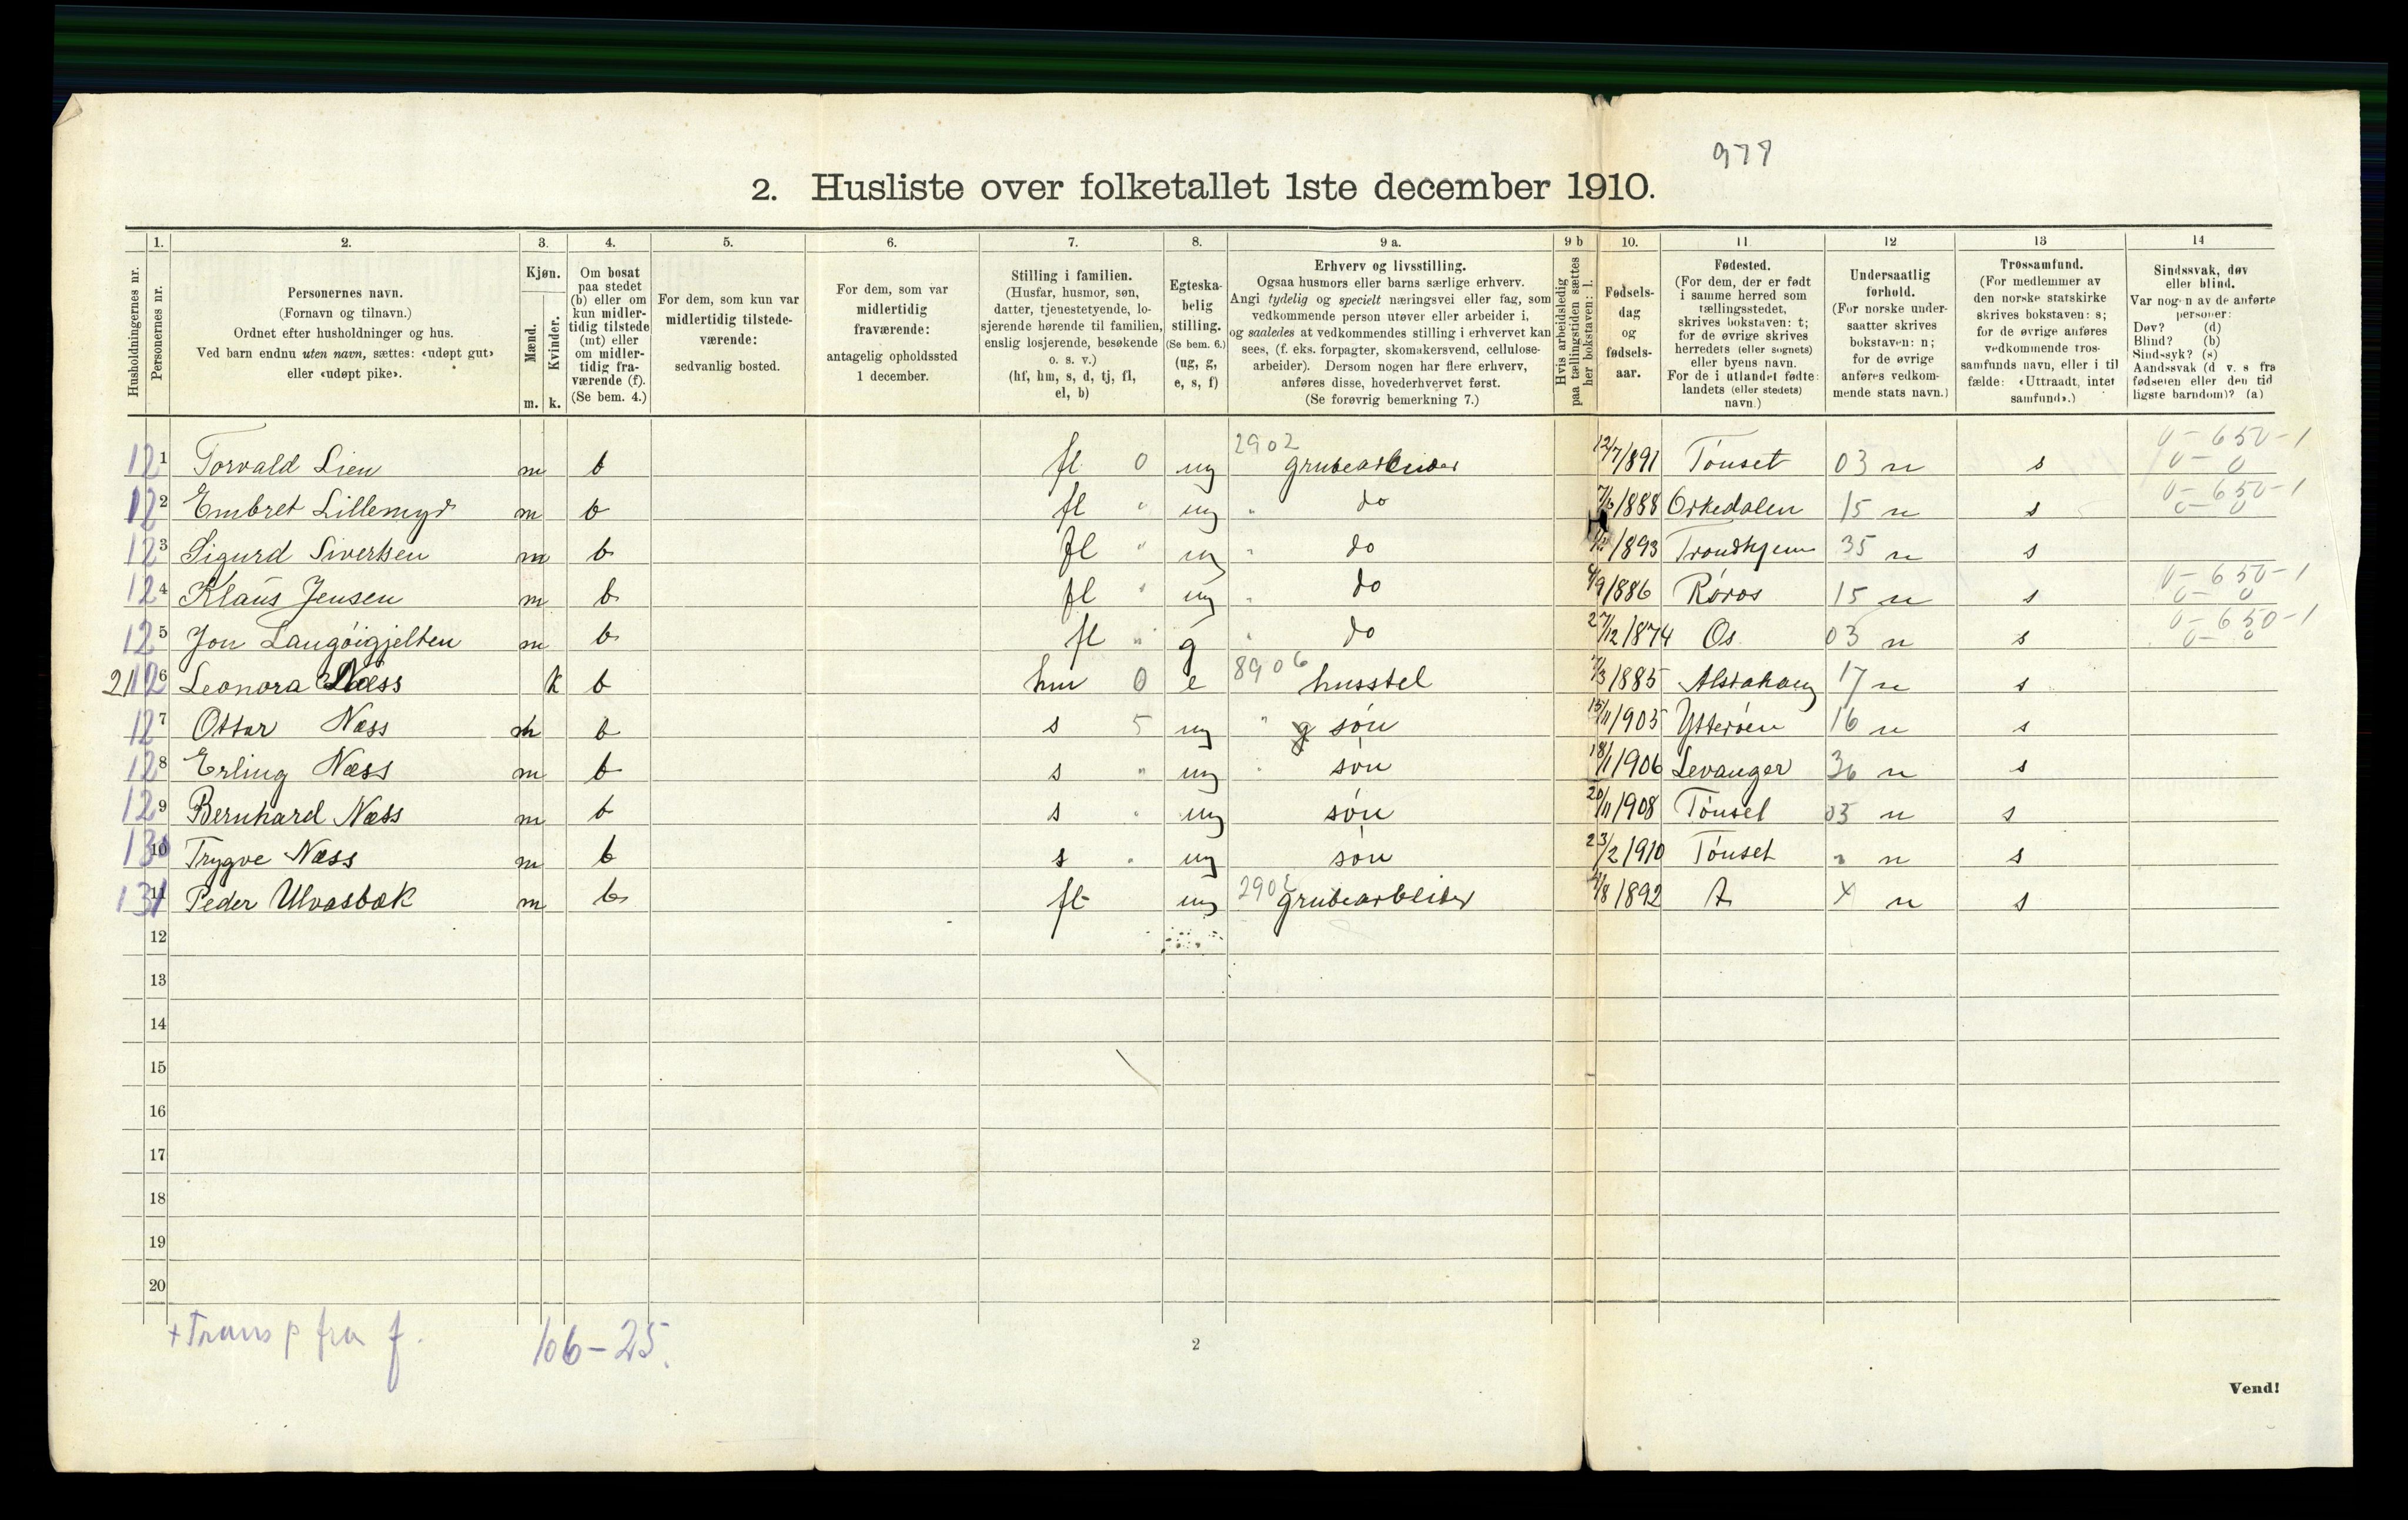 977
2. Husliste over folketallet 1ste december 1910.
1. 2. 3. 4. 5. 6. 7. 8. 9 a. 9 b 10. 11 12 13 14
Husholdningernes nr.
Personernes nr.
Personernes navn.
(Fornavn og tilnavn.)
Ordnet efter husholdninger og hus.
Ved barn endnu uten navn, sættes: «udøpt gut»
eller «udøpt pike».
Kjøn.
Mænd.
Kvinder.
m. k.
Om bosat
paa stedet
(b) eller om
kun midler-
tidig tilstede
(mt) eller
om midler-
tidig fra-
værende (f).
(Se bem. 4.)
For dem, som kun var
midlertidig tilstede-
værende:
sedvanlig bosted.
For dem, som var
midlertidig
fraværende:
antagelig opholdssted
1 december.
Stilling i familien.
(Husfar, husmor, søn,
datter, tjenestetyende, lo-
sjerende hørende til familien,
enslig losjerende, besøkende
o. s. v.)
(hf, hm, s, d, tj, fl,
el, b)
Egteska-
belig
stilling.
(Se bem. 6.)
(ug, g,
e, s, f)
Erhverv og livsstilling.
Ogsaa husmors eller barns særlige erhverv.
Angi tydelig og specielt næringsvei eller fag, som
vedkommende person utøver eller arbeider i,
og saaledes at vedkommendes stilling i erhvervet kan
sees, (f. eks. forpagter, skomakersvend, cellulose-
arbeider). Dersom nogen har flere erhverv,
anføres disse, hovederhvervet først.
(Se forøvrig bemerkning 7.)
Hvis arbeidsledig
paa tællingstiden sættes
her bokstaven: l.
Fødsels-
dag
og
fødsels-
aar.
Fødested.
(For dem, der er født
i samme herred som
tællingsstedet,
skrives bokstaven: t;
for de øvrige skrives
herredets (eller sognets)
eller byens navn.
For de i utlandet fødte:
landets (eller stedets)
navn.)
Undersaatlig
forhold.
(For norske under-
saatter skrives
bokstaven: n;
for de øvrige
anføres vedkom-
mende stats navn.)
Trossamfund.
(For medlemmer av
den norske statskirke
skrives bokstaven: s;
for de øvrige anføres
vedkommende tros-
samfunds navn, eller i til
fælde: «Uttraadt, intet
samfund».)
Sindssvak, døv
eller blind.
Var nogen av de anførte
personer:
Døv? (d)
Blind? (b)
Sindssyk? (s)
Aandssvak (d. v. s fra
fødselen eller den tid
ligste barndom)? (a)
1 Torvald Lien m b fl 0 ug 2902 grubearbeider 12/7/891 Tønset 03 n s 0-650-1 0-0
2 Embret Lillemyr m b fl " ug " do 1888 Orkedalen 15 n s 0-650-1 0-0
3 Sigurd Sivertsen m b fl " ug " do 1893 Trondhjem 35 n s
4 Klaus Jensen m b fl " ug " do 1886 Røros 15 n s 0-650-1 0-0
5 Jon Langøigjelten m b fl " g " do 27/12/1874 Os 03 n s 0-650-1 0-0
6 Leonora Næss k b hm 0 e 8906 husstel 1885 Alstahaug 17 n s
7 Ottar Næss m b s 5 ug " søn 15/11/1905 Ytterøen 16 n s
8 Erling Næss m b s " ug " søn 1906 Levanger 36 n s
9 Bernhard Næss m b s " ug søn 20/11/1908 Tønset 03 n s
10 Trygve Næss m b s " ug søn 23/2 1910 Tønset " n s
11 Peder Ulvasbæk m b fl ug 2902 grubearbeider 1892 t x n s
12
13
14
15
16
17
18
19
20
+ Transp fra f. 106-25.
2
Vend!